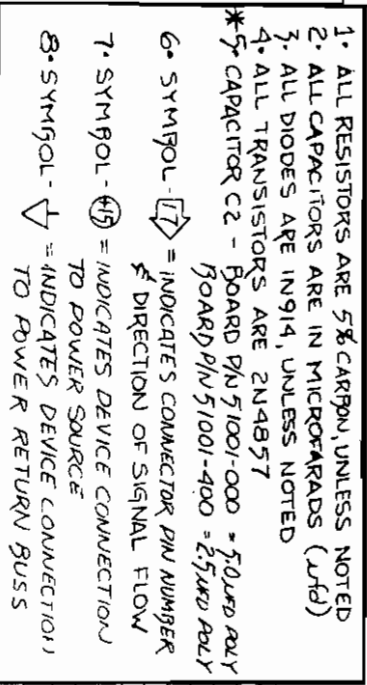 1. ALL RESISTORS ARE 5% CARBON, UNLESS NOTED
2. ALL CAPACITORS ARE IN MICROFARADS (ufd)
3. ALL DIODES ARE IN914, UNLESS NOTED
4. ALL TRANSISTORS ARE 2N4857
*5. CAPACITOR C2 - BOARD P/N 51001-000 = 5.0 MFD POLY
BOARD P/N 51001-400 = 2.5 MFD POLY
6. SYMBOL - 17 = INDICATES CONNECTOR PIN NUMBER
& DIRECTION OF SIGNAL FLOW
7. SYMBOL - +15 = INDICATES DEVICE CONNECTION
TO POWER SOURCE
8. SYMBOL - = INDICATES DEVICE CONNECTION
TO POWER RETURN BUSS